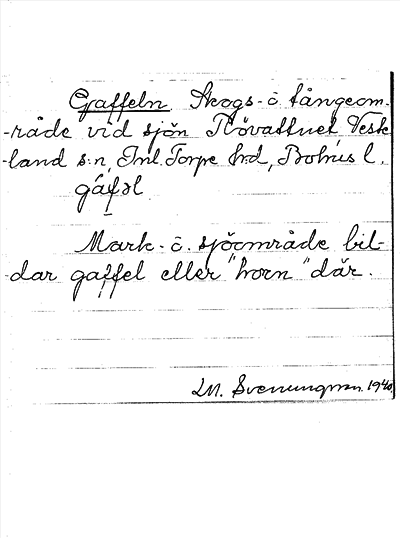 Gaffeln Skogs- o tångeom-
-råde vid sjön Rövattnet, Vesk-
-land s:n, Inl. Torpe hd, Bohus l.
gáfəl
Mark- o. sjöområde bil-
dar gaffel eller "horn" där.
LM. Svenungsson. 1940